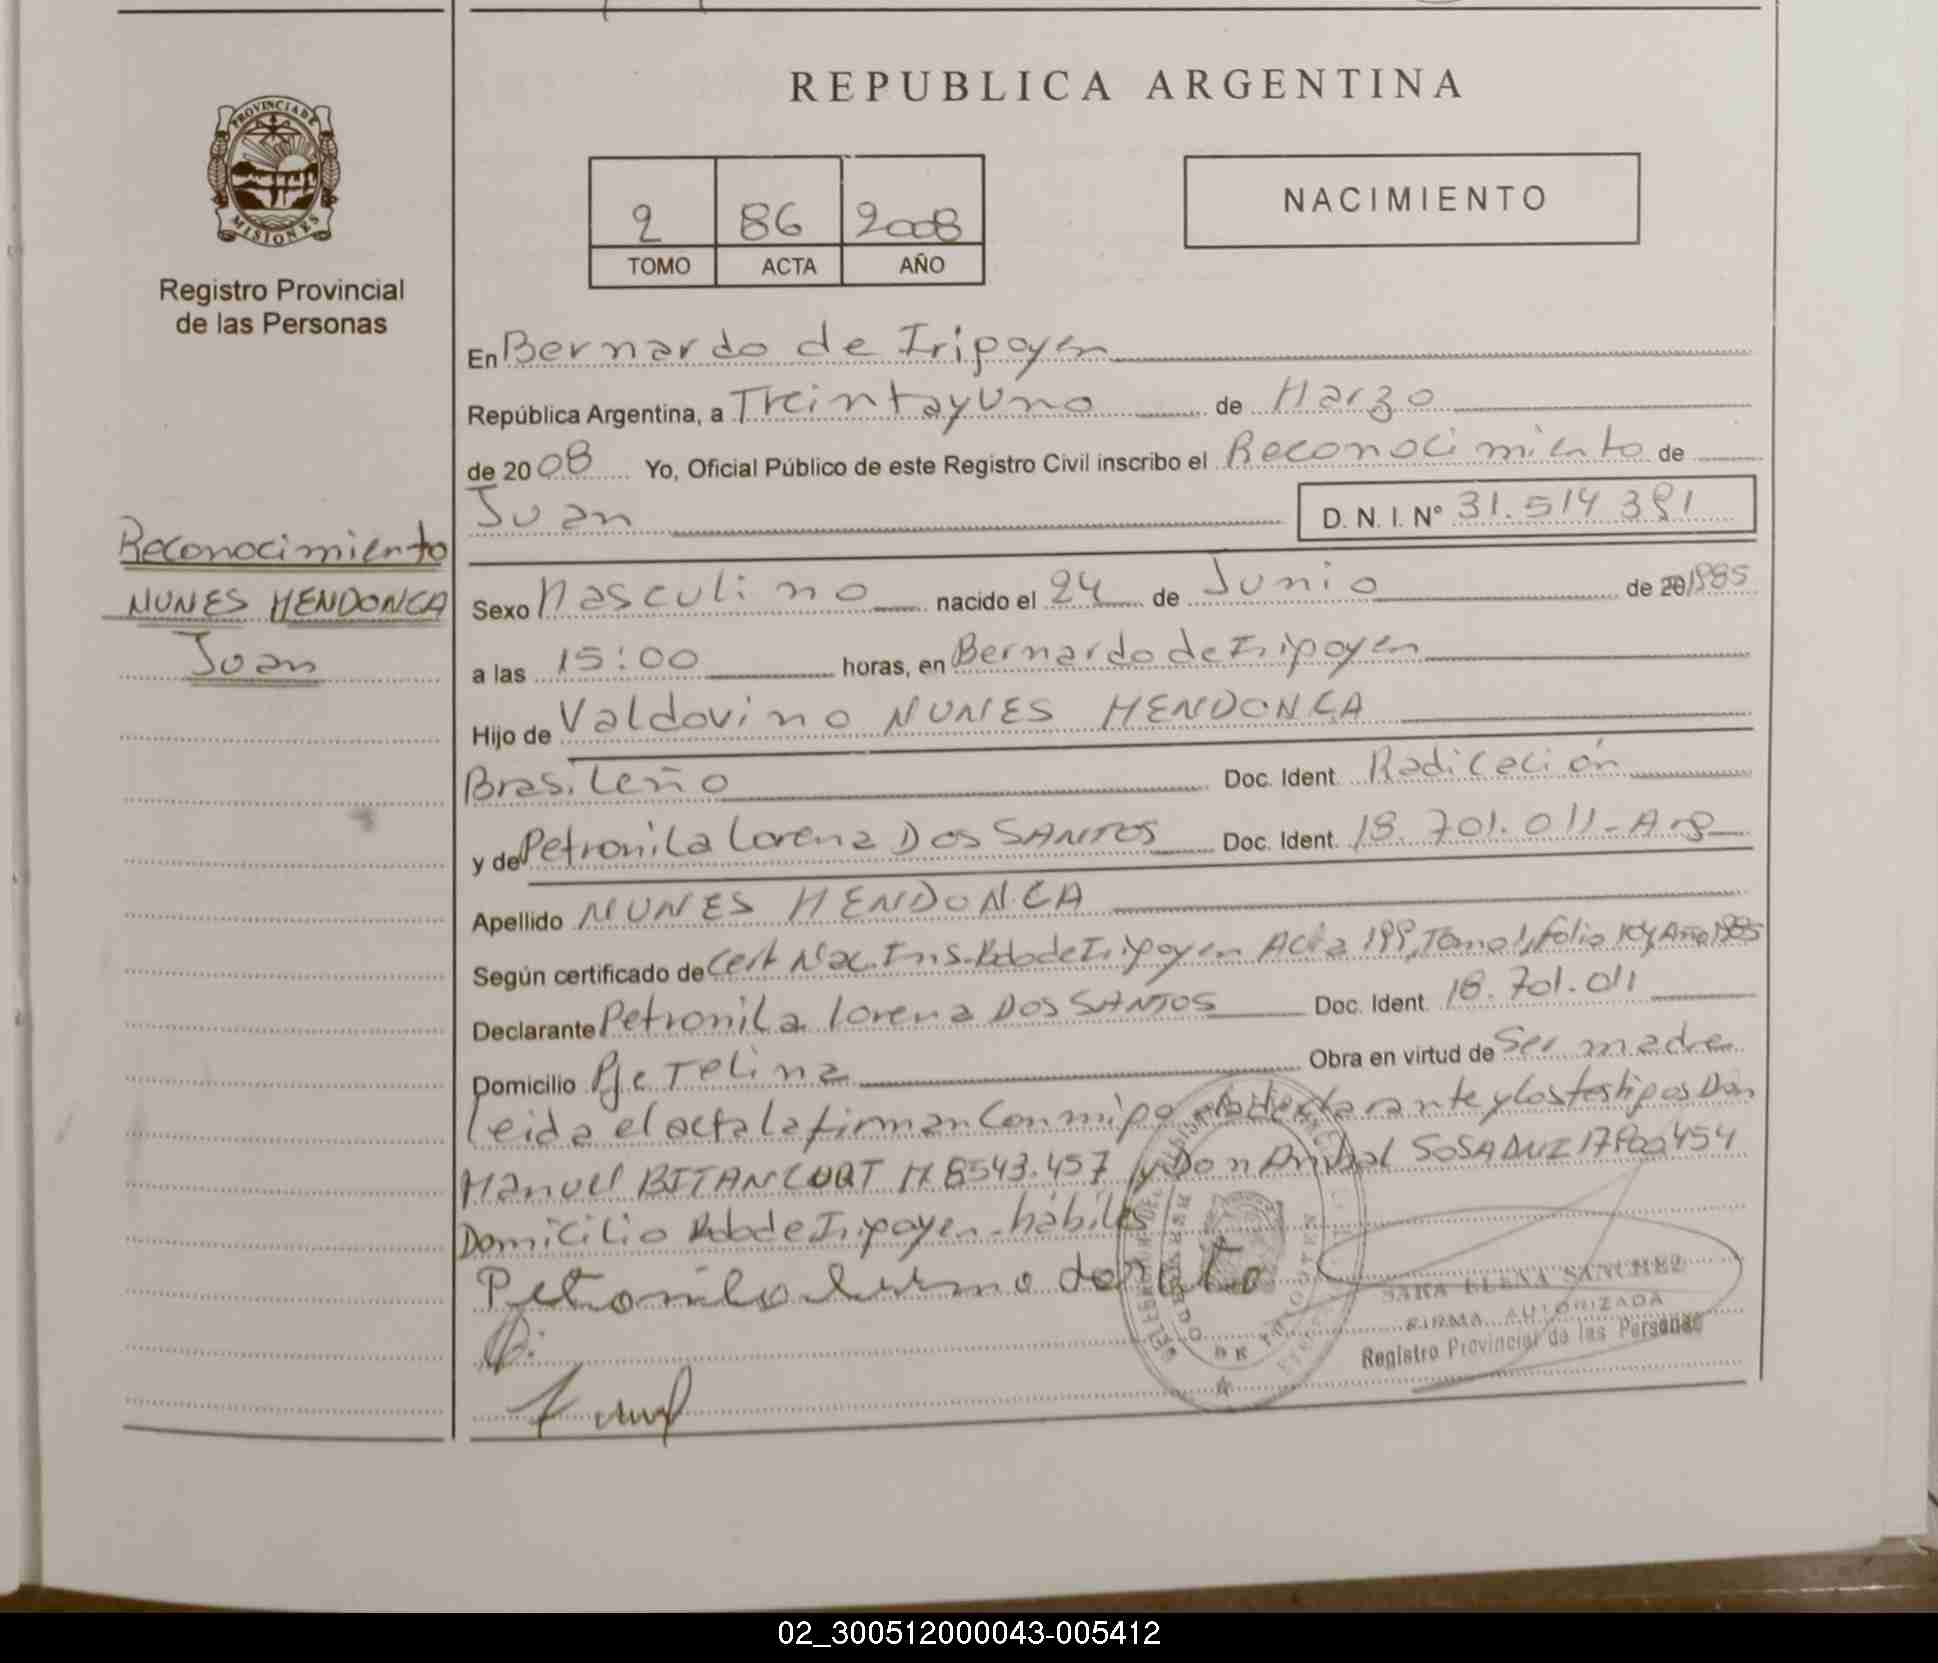 REPUBLICA ARGENTINA
PROVINCIA DE
MISIONES
Registro Provincial
de las Personas
2 86 2008
TOMO ACTA AÑO
NACIMIENTO
En Bernardo de Irigoyen
República Argentina, a Treinta y Uno de Marzo
de 2008 Yo, Oficial Público de este Registro Civil inscribo el Reconocimiento de
Juan D. N. I. N° 31.514 391
Reconocimiento
NUNES MENDONCA
Juan
Sexo Masculino nacido el 24 de Junio de 20 1985
a las 15:00 horas, en Bernardo de Irigoyen
Hijo de Valdovino NUNES MENDONCA
Brasileño Doc. Ident. Radicación
y de Petronila Lorena DOS SANTOS Doc. Ident. 18.701.011-Arg
Apellido NUNES MENDONCA
Según certificado de Cert Nac. Ins. Bdo de Irigoyen Acta 199, Tomo 1, folio 104 Año 1985
Declarante Petronila Lorena DOS SANTOS Doc. Ident. 18.701.011
Domicilio Pje Telina Obra en virtud de Ser madre
Leida el acta la firman Conmigo la declarante y los testigos Don
Manuel BITANCURT M 8543.457 y Don Anibal SOSA DNI 17 454
Domicilio Bdo de Irigoyen - hábiles
Petronila
SARA ELENA SANCHEZ
FIRMA AUTORIZADA
Registro Provincial de las Personas
02_300512000043-005412